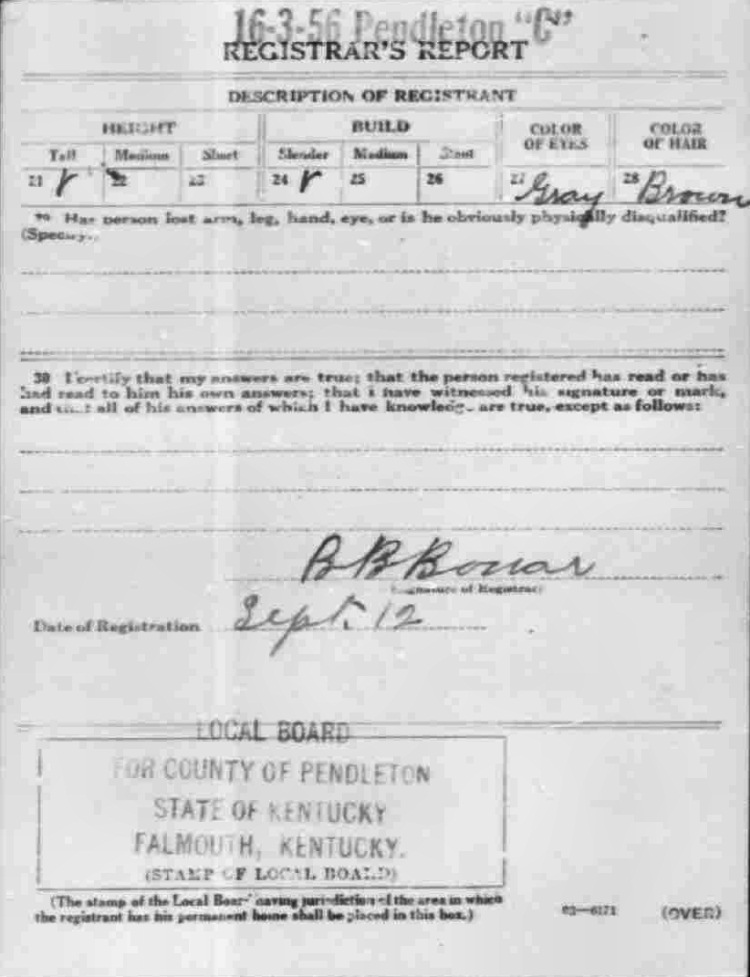 16-3-56 Pendleton "C"
REGISTRAR'S REPORT
DESCRIPTION OF REGISTRANT
HEIGHT BUILD COLOR OF EYES COLOR OF HAIR
Tall Medium Short Slender Medium Stout
21 ✓ 22 23 24 ✓ 25 26 27 Gray 28 Brown
29 Has person lost arm, leg, hand, eye, or is he obviously physically disqualified?
(Specify.)
30 I certify that my answers are true; that the person registered has read or has
had read to him his own answers; that I have witnessed his signature or mark,
and that all of his answers of which I have knowledge are true, except as follows:
B B Bonar
(Signature of Registrar)
Date of Registration Sept. 12
LOCAL BOARD
FOR COUNTY OF PENDLETON
STATE OF KENTUCKY
FALMOUTH, KENTUCKY.
(STAMP OF LOCAL BOARD)
(The stamp of the Local Board having jurisdiction of the area in which
the registrant has his permanent home shall be placed in this box.)
03—6171 (OVER)